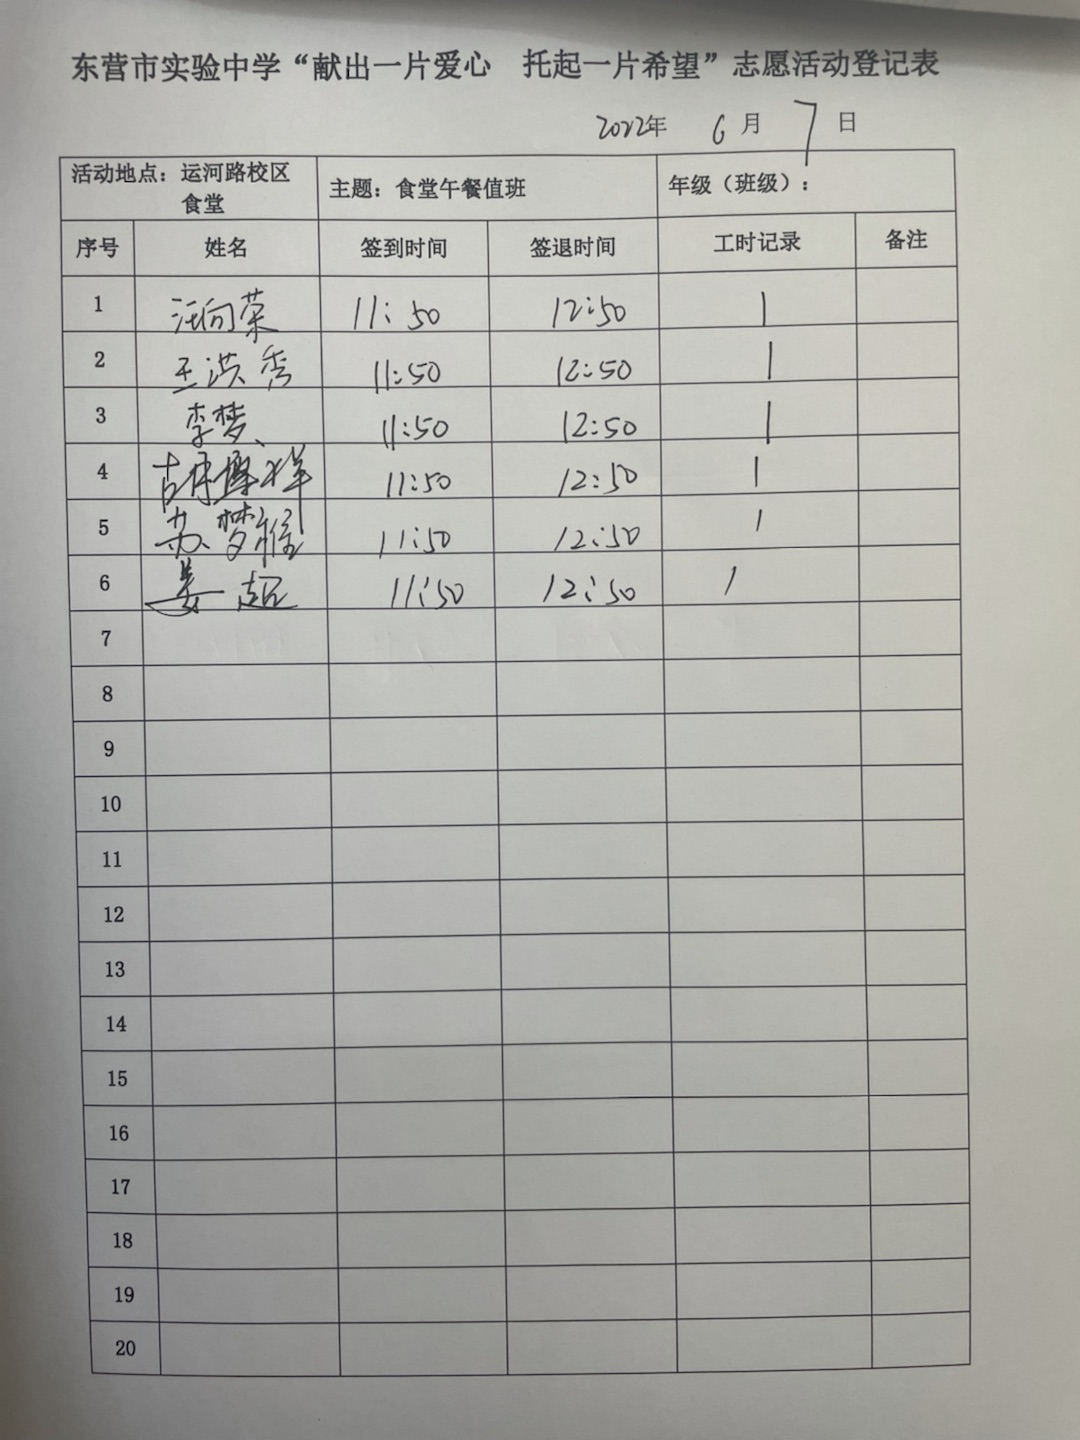 东营市实验中学“献出一片爱心 托起一片希望”志愿活动登记表
2022年 6 月 7 日
活动地点：运河路校区 主题：食堂午餐值班 年级（班级）：
食堂
序号 姓名 签到时间 签退时间 工时记录 备注
1 汪向荣 11:50 12:50 1
2 王洪秀 11:50 12:50 1
3 李梦 11:50 12:50 1
4 胡博祥 11:50 12:50 1
5 苏梦雅 11:50 12:50 1
6 姜超 11:50 12:50 1
7
8
9
10
11
12
13
14
15
16
17
18
19
20